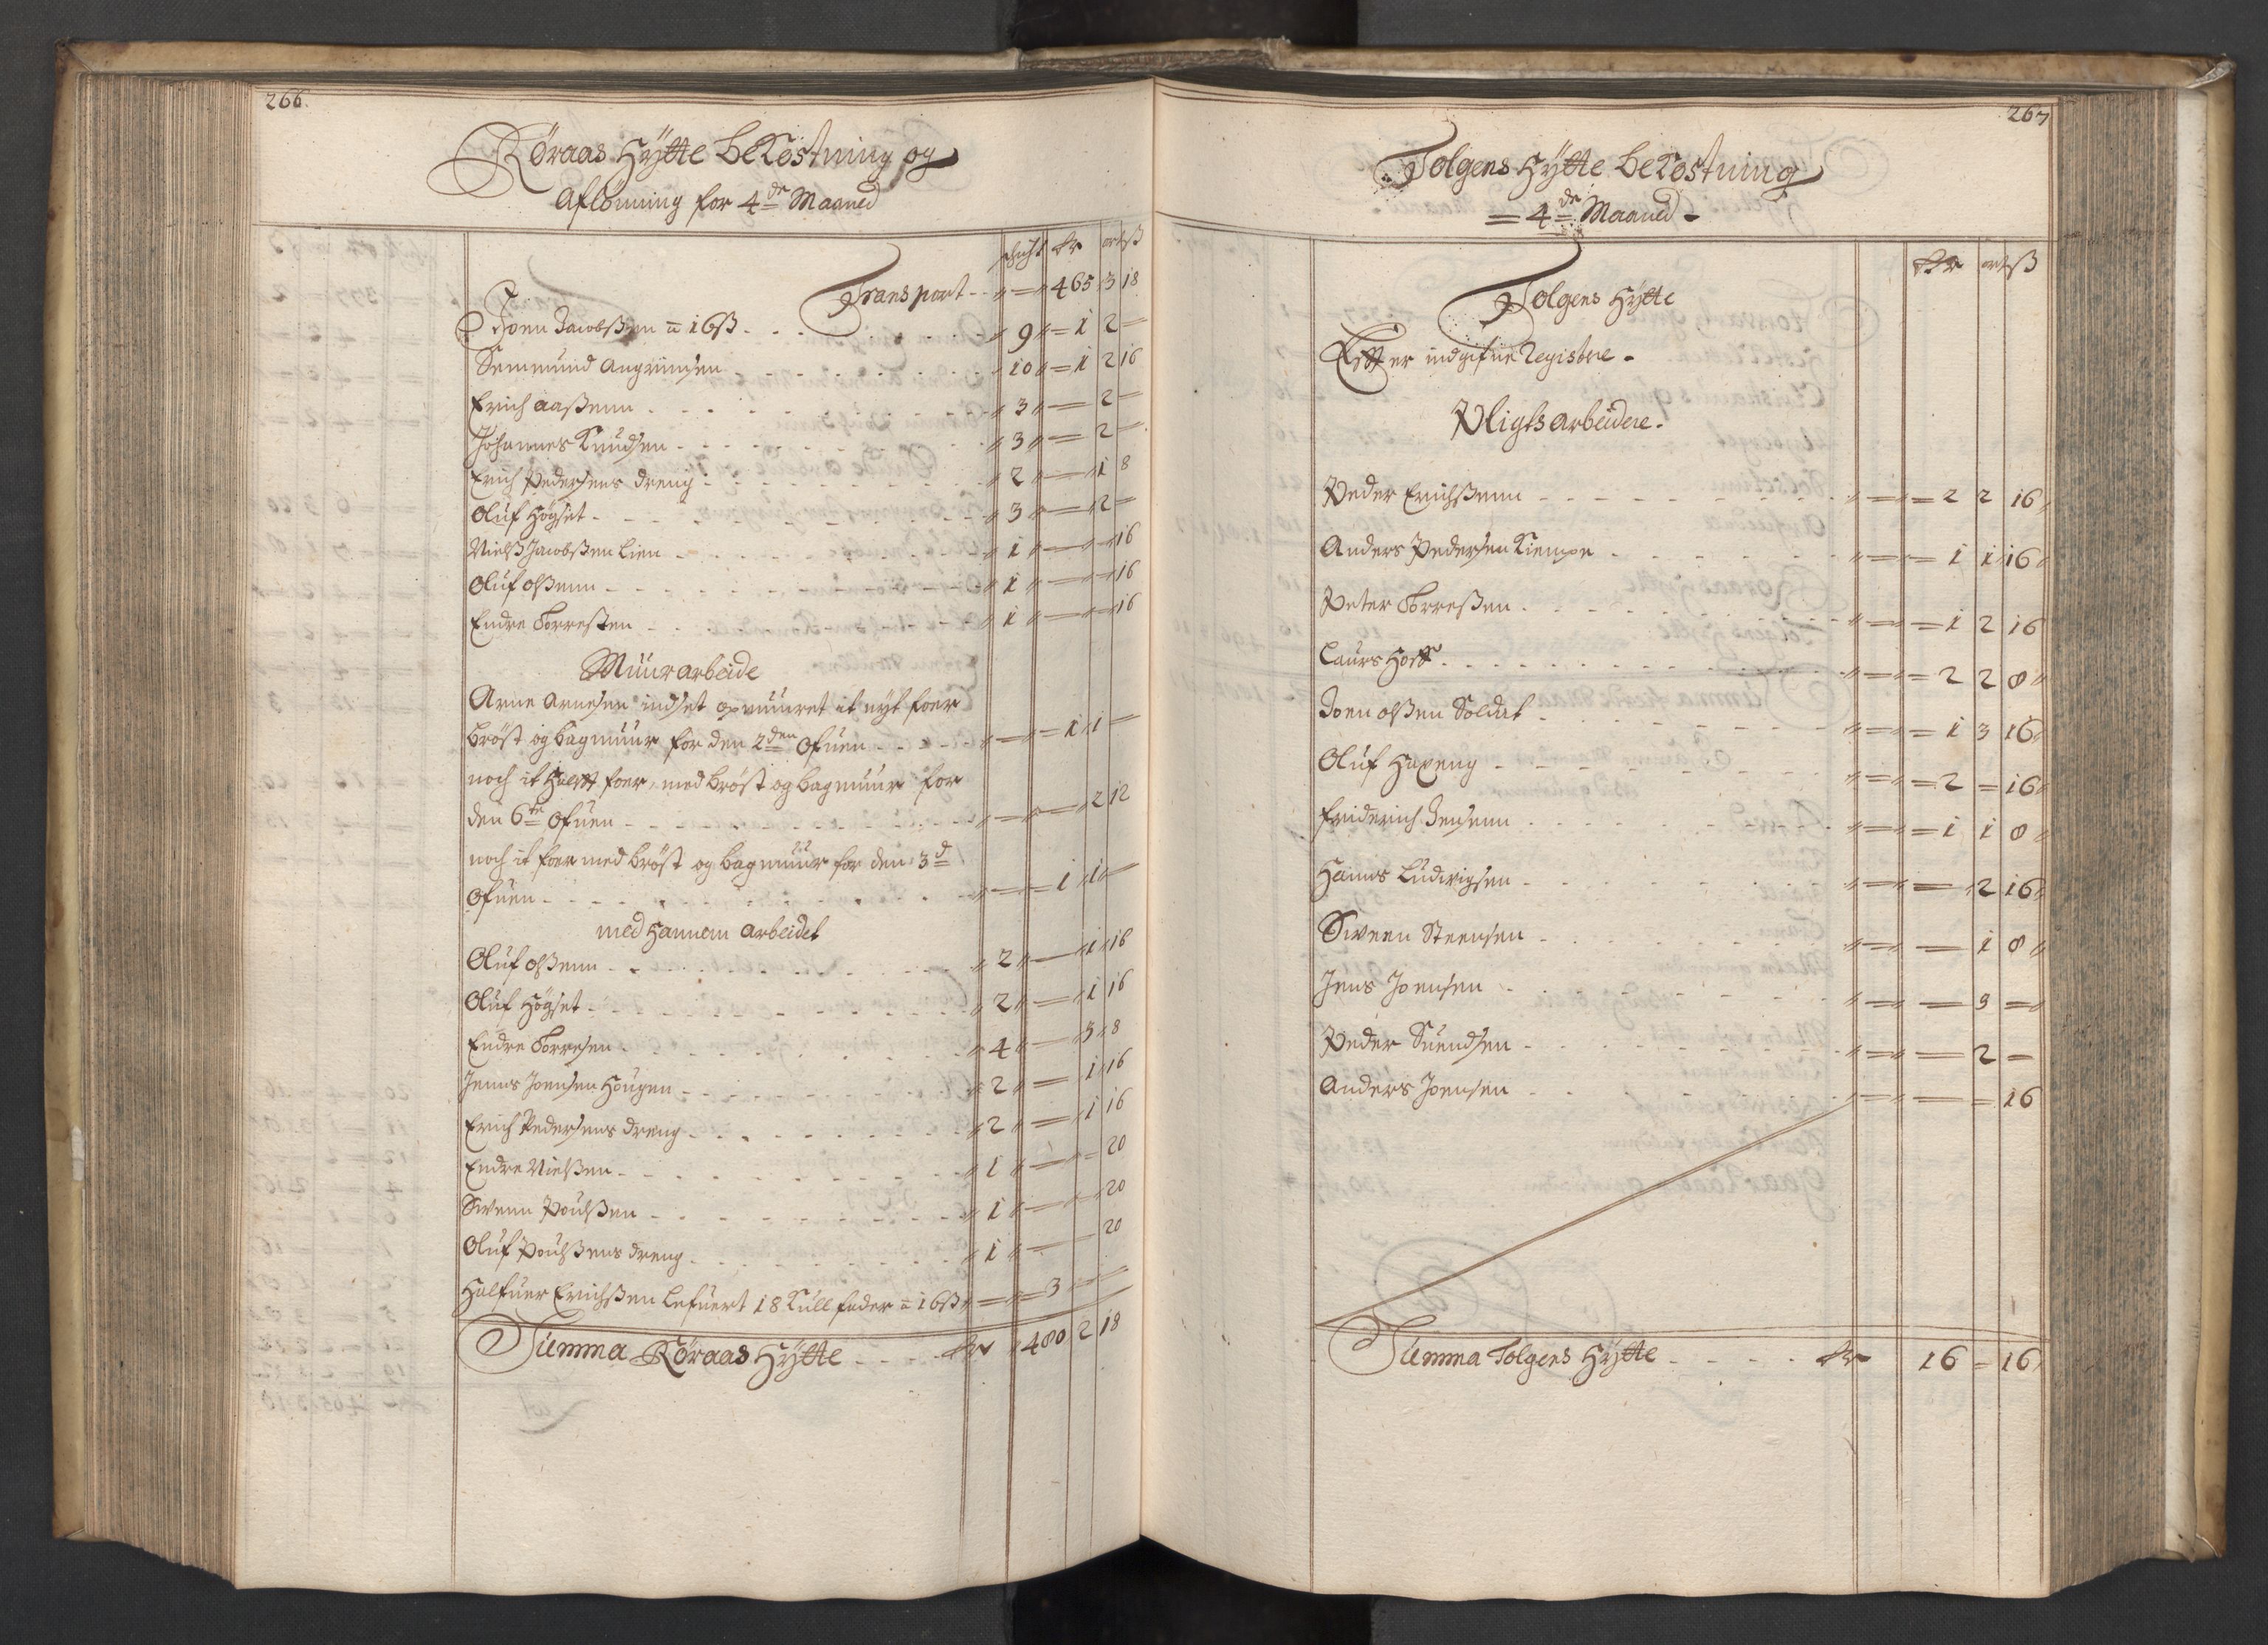 266.
Røraas Hytte bekostning og
Aflønning for 4de Maaned
schicht Rdr ort ß
Transport - - " = " 465 3 18
Joen Jacobßen a 16 ß - - - " 9 " = 1 2 =
Semmund Angrimsen - - - 10 " = 1 2 16
Erich Aaßenn - - - " 3 " = 2 =
Johannes Knudsen - - - " 3 " = 2 =
Erich Pedersens dreng - - - " 2 " = 1 8
Oluf Høgset - - - " 3 " = 2 =
Nielß Jacobßen Lien - - - " 1 " = " 16
Oluf Olßenn - - - " 1 " = " 16
Endre Torreßen - - - " 1 " = " 16
Muur arbeide
Arne Arnesen indset opmuuret it nyt foer
brøst og bagmuur for den 2den Ofuen - - - " = " = 1 1 =
noch it Halft foer, med brøst og bagmuur for
den 6te Ofuen - - - " = " = 2 12
noch it foer med brøst og bagmuur for den 3d
Ofuen - - - " = = 1 1 =
med hannem arbeidet
Oluf Olßenn - - - " 2 " = 1 16
Oluf Høgset - - - " 2 " = 1 16
Endre Torresen - - - " 4 " = 3 8
Jenns Joensen Hougen - - - " 2 " = 1 16
Erich Pedersens dreng - - - " 2 " = 1 16
Endre Nielßen - - - " 1 " = = 20
Swenn Poulßen - - - " 1 " = = 20
Oluf Poulßens dreng - - - " 1 " = 20
Halfuer Erichßen Lefuert 18 Kull fader a 16 ß " = " = 3 = =
Summa Røraas Hytte - - - Rdr 480 2 18
267
Tolgens Hytte bekostning
= 4de Maaned -
Rdr ort ß
Tolgens Hytte
Efter indgifne Registere -
Pligts arbeidere -
Peder Erichßenn - - - " = " = 2 2 16
Anders Pedersen Kiempe - - - " = " = 1 1 16
Peter Torreßen - - - " = " = 1 2 16
Laurs Hoff - - - " = " = 2 2 8
Joen Olßen Soldat - - - " = " = 1 3 16
Oluf Haxeng - - - " = " = 2 = 16
Friderich Jensenn - - - " = " = 1 1 8
Hanns Ludvigsen - - - " = " = 2 16
Sweenn Steensen - - - " = " = 1 8
Jens Joensen - - - " = " = 3 =
Peder Suendsen - - - " = " = 2 =
Anders Joensen - - - " = " = = 16
Summa Tolgens Hytte - - - Rdr 16 = 16